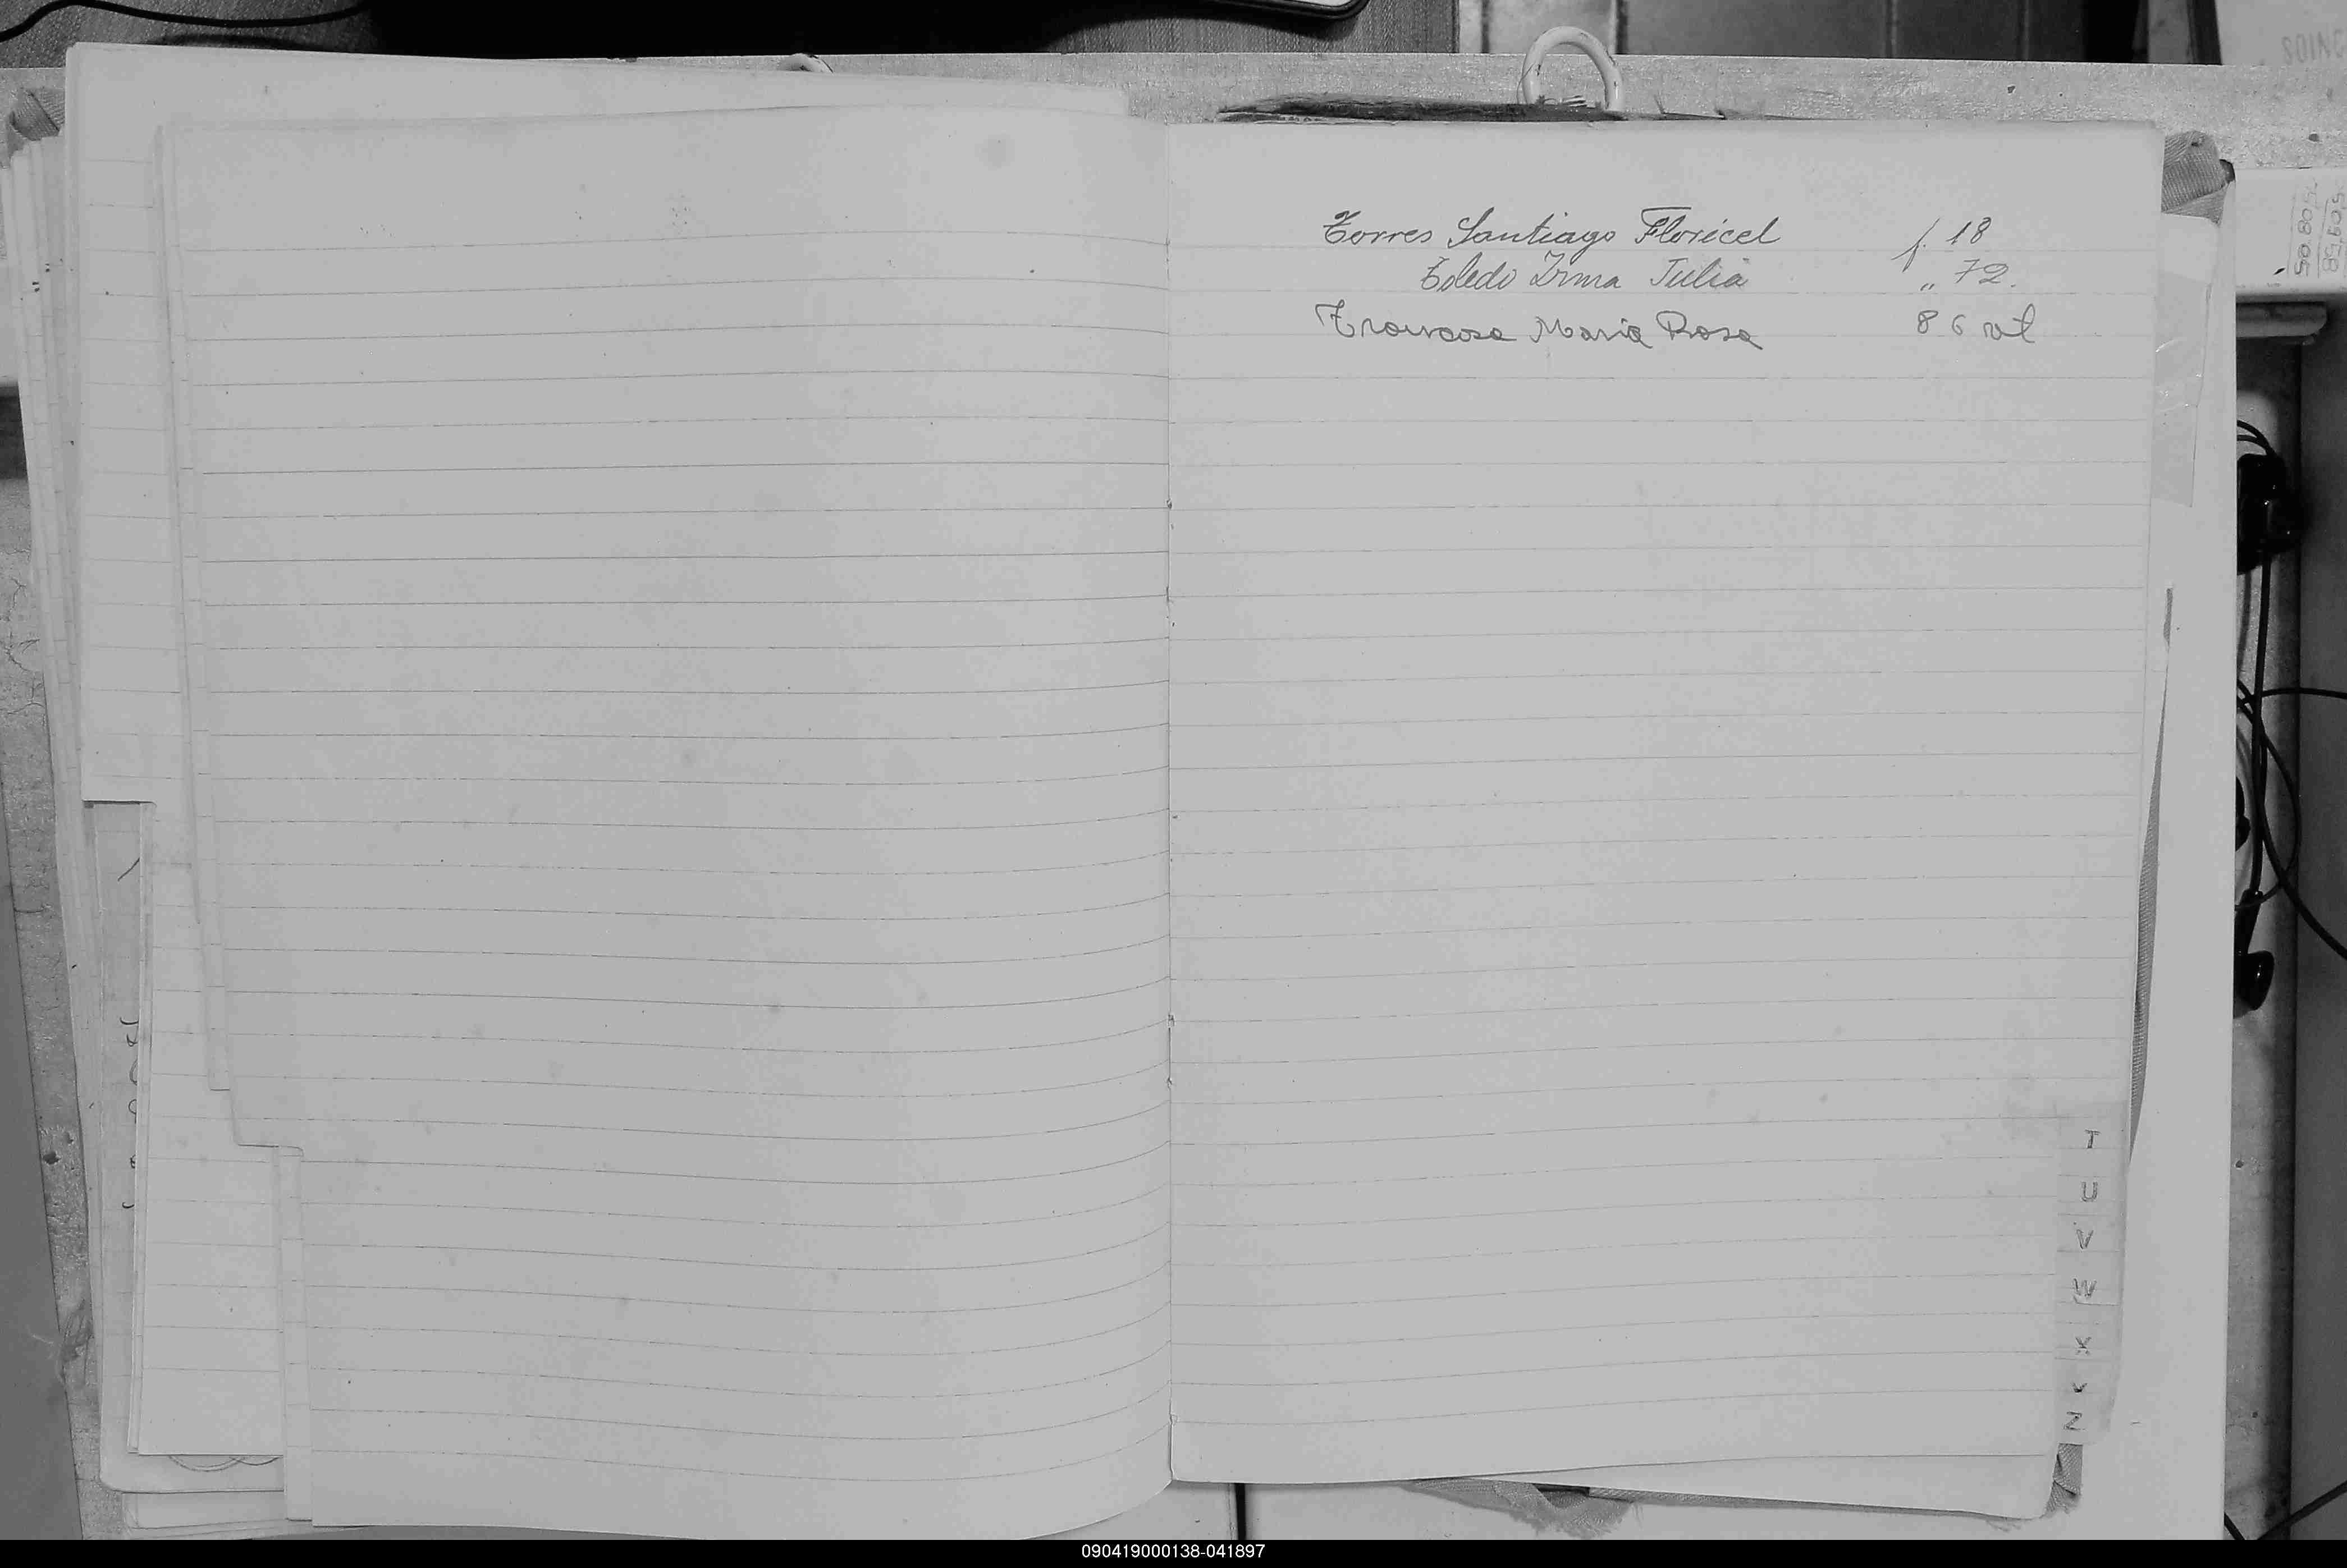 Torres Santiago Floricel f. 18
Toledo Irma Julia " 72.
Troncoso Maria Rosa 86 vt
T
U
V
W
X
Y
Z
090419000138-041897